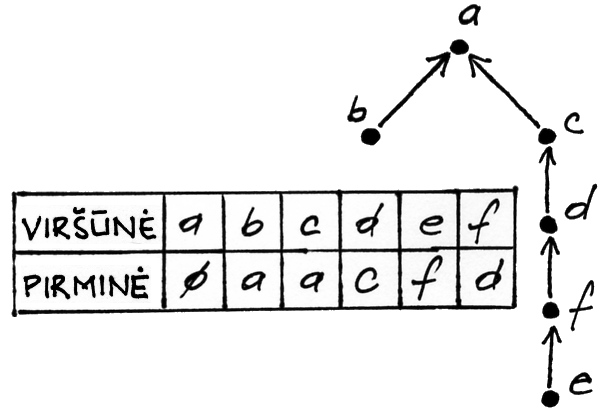 a
b
c
d
f
e
VIRŠŪNĖ a b c d e f
PIRMINĖ ∅ a a c f d